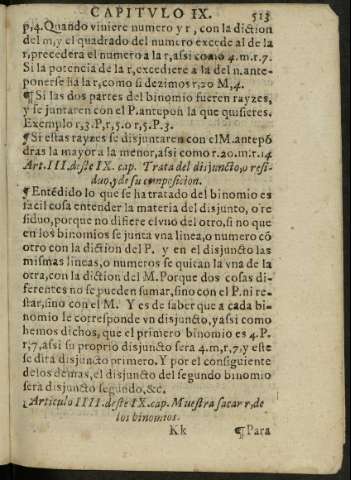 CAPITVLO IX. 513
p,4. Quando viniere numero y r, con la diction
del m, y el quadrado del numero excede al de la
r, precedera el numero a la r, assi como 4.m.r.7.
Si la potencia de la r, excediere a la del n. ante-
ponerse ha la r, como si dezimos r, 20 M, 4.
¶ Si las dos partes del binomio fueren rayzes,
y se juntaren con el P. antepon la que quisieres.
Exemplo r, 3. P, r, 5. o r, 5. P. 3.
¶ Si estas rayzes se disjuntaren con el M. antepō
dras la mayor a la menor, assi como r. 20. m. r. 14
Art. III. deste IX. cap. Trata del disjuncto, o resi-
duo, y de su composicion.
¶ Entēdido lo que se ha tratado del binomio es
facil cosa entender la materia del disjunto, o re
siduo, porque no difiere el vno del otro, si no que
en los binomios se junta vna linea, o numero cō
otro con la diction del P. y en el disjuncto las
mismas lineas, o numeros se quitan la vna de la
otra, con la diction del M. Porque dos cosas di-
ferentes no se pueden sumar, sino con el P. ni re-
star, sino con el M. Y es de saber que a cada bi-
nomio le corresponde vn disjuncto, y assi como
hemos dichos, que el primero binomio es 4. P.
r; 7, assi su proprio disjuncto sera 4. m, r, 7, y este
se dira disjuncto primero. Y por el consiguiente
de los demas, el disjuncto del segundo binomio
sera disjuncto segundo, &c.
Articulo IIII. deste IX. cap. Muestra sacar r, de
los binomios.
Kk ¶ Para